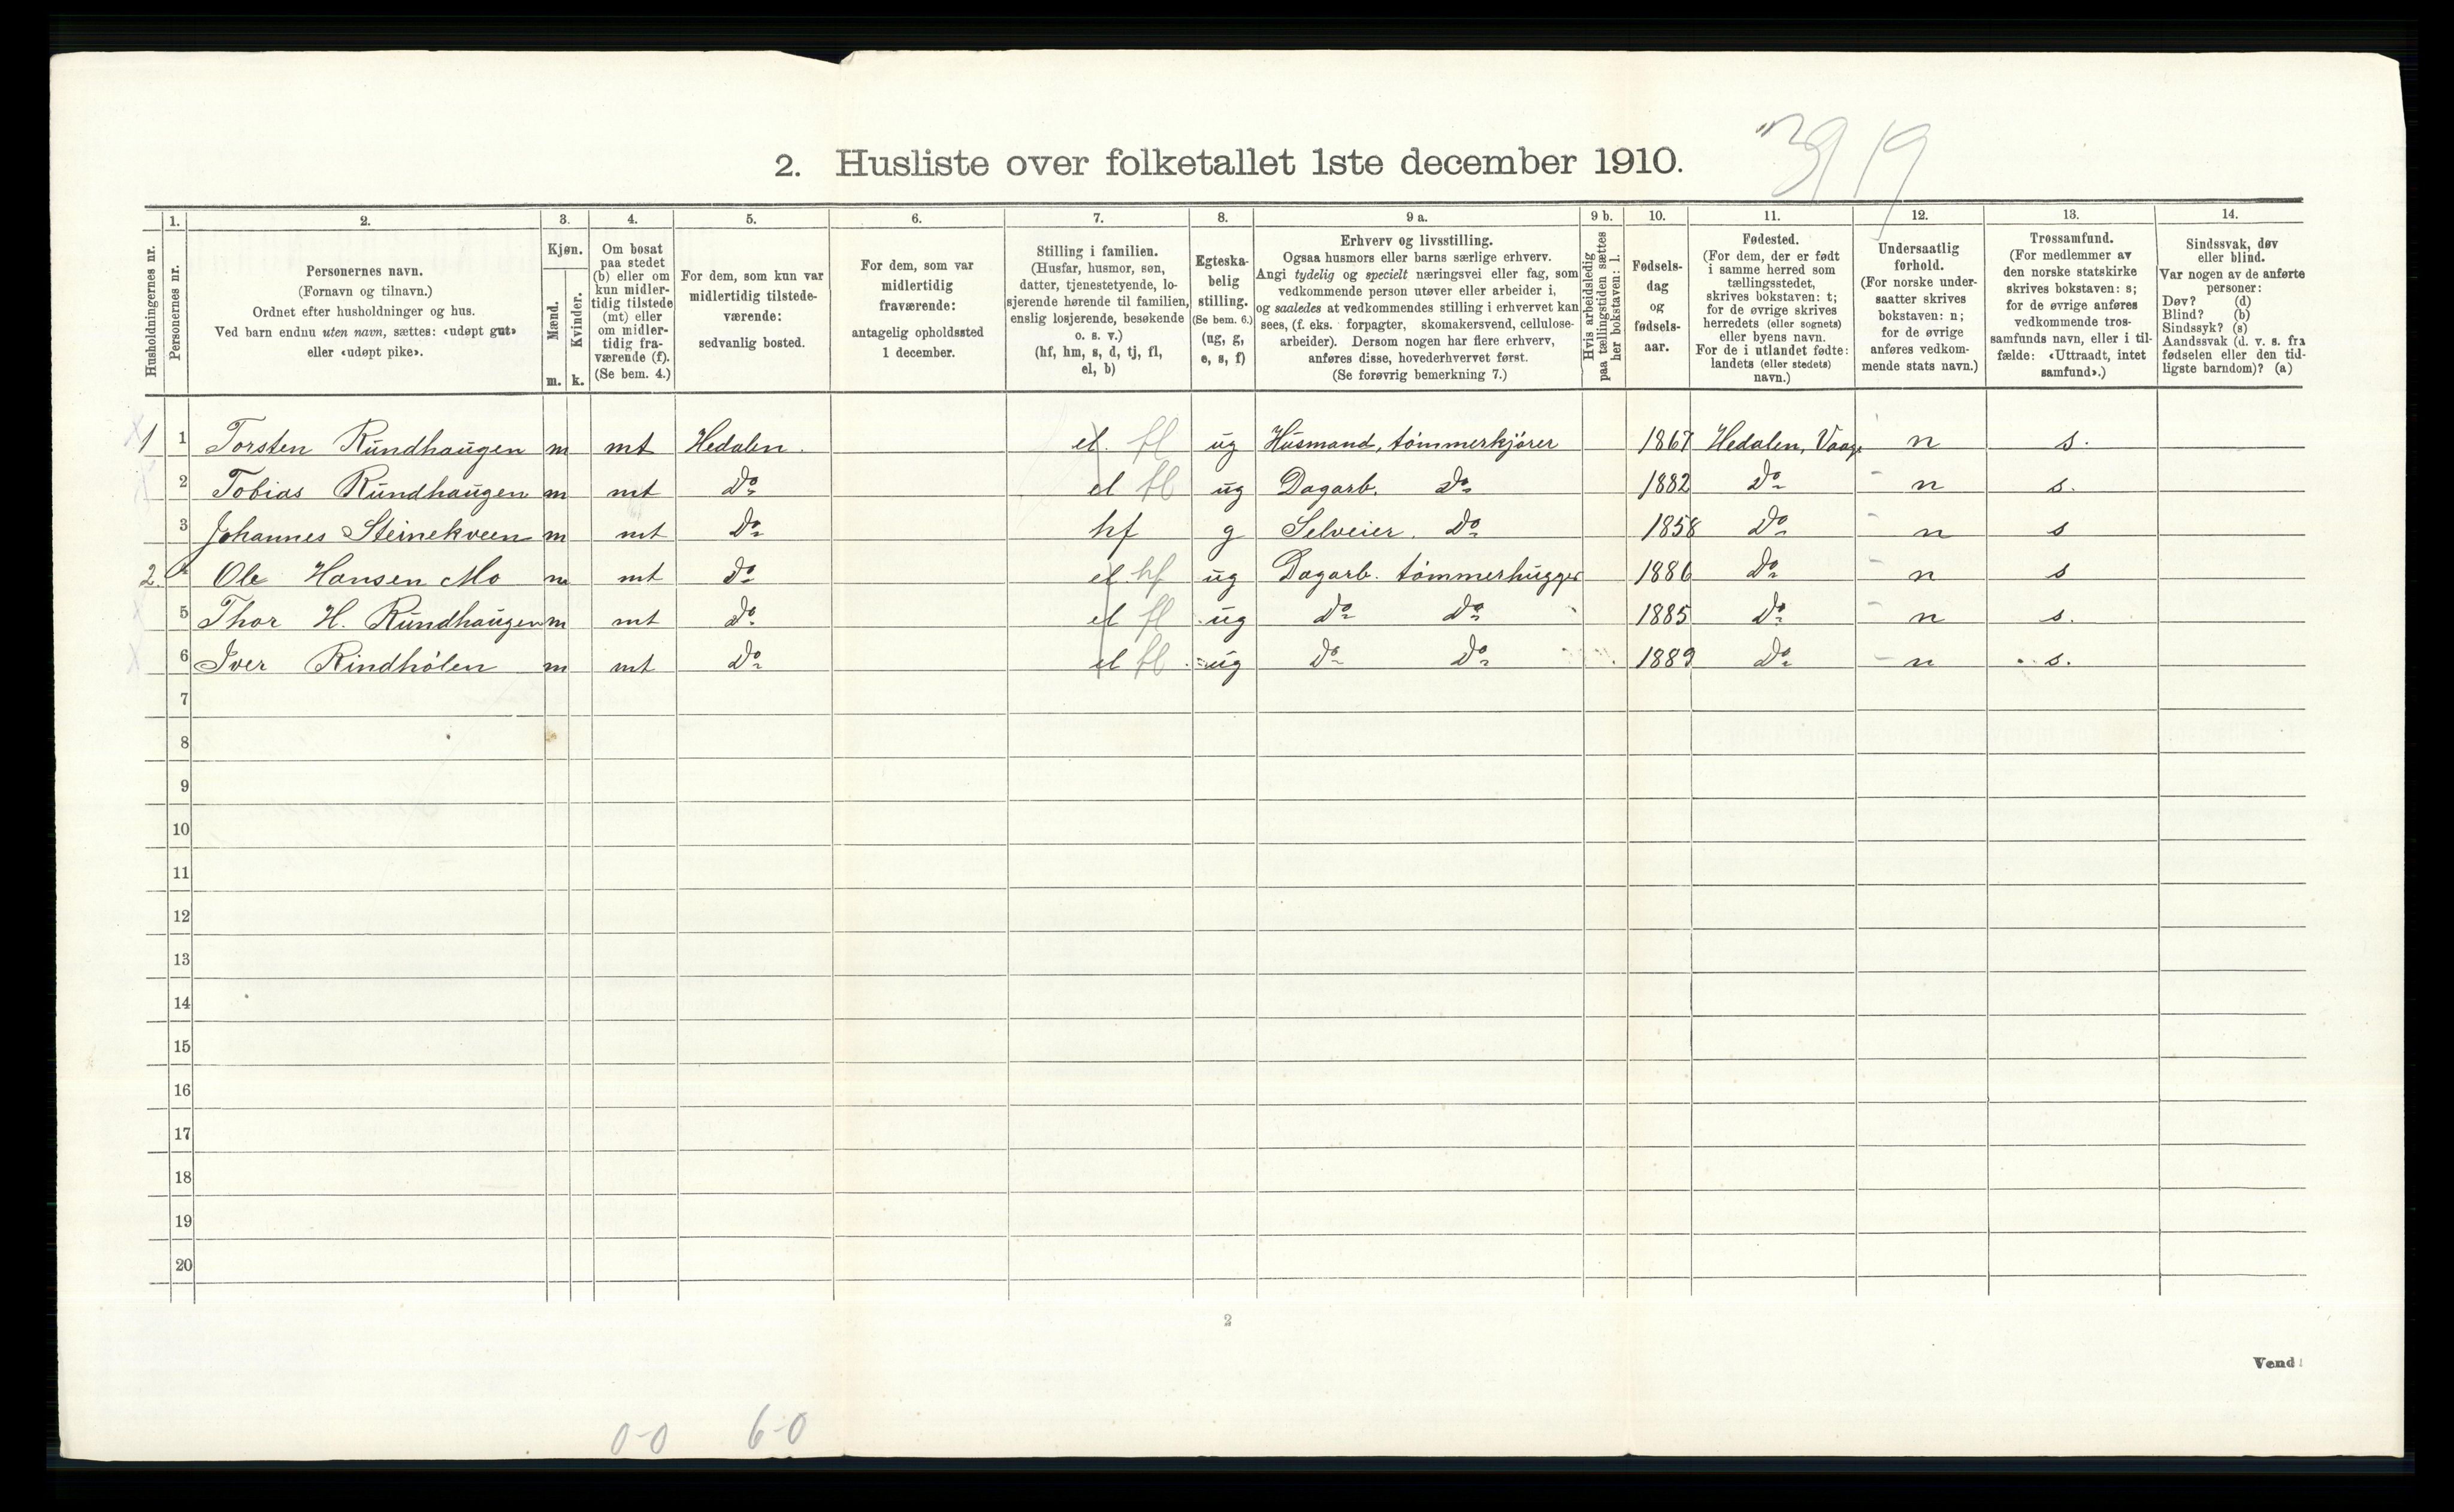 39 19
2. Husliste over folketallet 1ste december 1910.
Husholdningernes nr.
1. Personernes nr.
2. Personernes navn. (Fornavn og tilnavn.) Ordnet efter husholdninger og hus. Ved barn endnu uten navn, sættes: «udøpt gut» eller «udøpt pike».
3. Kjøn. Mænd. m. Kvinder. k.
4. Om bosat paa stedet (b) eller om kun midler-tidig tilstede (mt) eller om midler-tidig fra-værende (f). (Se bem. 4.)
5. For dem, som kun var midlertidig tilstede-værende: sedvanlig bosted.
6. For dem, som var midlertidig fraværende: antagelig opholdssted 1 december.
7. Stilling i familien. (Husfar, husmor, søn, datter, tjenestetyende, lo-sjerende hørende til familien, enslig losjerende, besøkende o. s. v.) (hf, hm, s, d, tj, fl, el, b)
8. Egteska-belig stilling. (Se bem. 6.) (ug, g, e, s, f)
9 a. Erhverv og livsstilling. Ogsaa husmors eller barns særlige erhverv. Angi tydelig og specielt næringsvei eller fag, som vedkommende person utøver eller arbeider i, og saaledes at vedkommendes stilling i erhvervet kan sees, (f. eks. forpagter, skomakersvend, cellulose-arbeider). Dersom nogen har flere erhverv, anføres disse, hovederhvervet først. (Se forøvrig bemerkning 7.)
9 b. Hvis arbeidsledig paa tællingstiden sættes her bokstaven: l.
10. Fødsels-dag og fødsels-aar.
11. Fødested. (For dem, der er født i samme herred som tællingsstedet, skrives bokstaven: t; for de øvrige skrives herredets (eller sognets) eller byens navn. For de i utlandet fødte: landets (eller stedets) navn.)
12. Undersaatlig forhold. (For norske under-saatter skrives bokstaven: n; for de øvrige anføres vedkom-mende stats navn.)
13. Trossamfund. (For medlemmer av den norske statskirke skrives bokstaven: s; for de øvrige anføres vedkommende tros-samfunds navn, eller i til-fælde: «Uttraadt, intet samfund».)
14. Sindssvak, døv eller blind. Var nogen av de anførte personer: Døv? (d) Blind? (b) Sindssyk? (s) Aandssvak (d. v. s. fra fødselen eller den tid-ligste barndom)? (a)
1 1 Torsten Rundhaugen m mt Hedalen. el. fl ug Husmand, tømmerkjører 1867 Hedalen, Vaage n s.
2 Tobias Rundhaugen m mt Do el fl ug Dagarb. Do 1882 Do n s.
3 Johannes Steinekveen m mt Do hf g Selveier. Do 1858 Do n s
2. 4 Ole Hansen Mo m mt Do el hf ug Dagarb. tømmerhugger 1886 Do n s
5 Thor H. Rundhaugen m mt Do el fl ug Do Do 1885 Do n s.
6 Iver Rindhølen m mt Do el fl ug Do Do 1889 Do n s.
7
8
9
10
11
12
13
14
15
16
17
18
19
20
2
Vend!
0-0 6-0